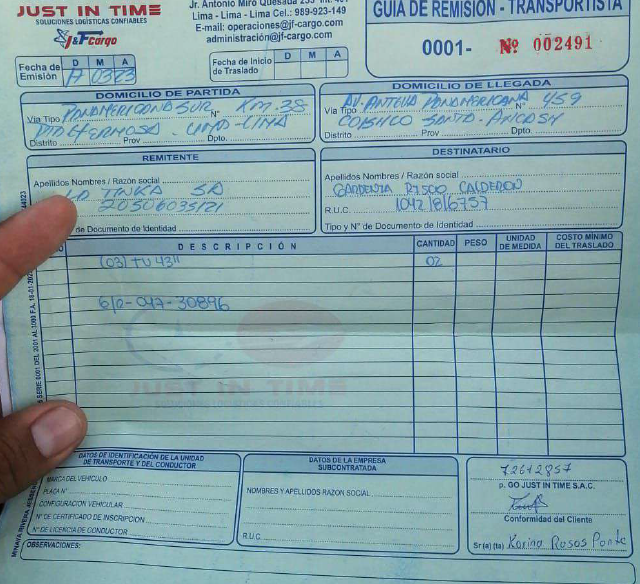 JUST IN TIME
SOLUCIONES LOGÍSTICAS CONFIABLES
J&F cargo
Lima - Lima - Lima Cel.: 989-923-149
E-mail: operaciones@jf-cargo.com
administración@jf-cargo.com
GUIA DE REMISIÓN - TRANSPORTISTA
0001- Nº 002491
Fecha de Emisión
D M A
Fecha de Inicio de Traslado
D M A
DOMICILIO DE PARTIDA
Via Tipo PANAMERICANA SUR Nº KM. 38
Distrito Prov Dpto.
DOMICILIO DE LLEGADA
Via Tipo AV. ANTIGUA PANAMERICANA 459
Distrito Prov. Dpto.
REMITENTE
Apellidos Nombres / Razón social
LA TINKA SA
20506035121
de Documento de Identidad
DESTINATARIO
Apellidos Nombres / Razón social
GARDENIA RISCO CALDERON
R.U.C. 10421816757
Tipo y N° de Documento de Identidad
DESCRIPCIÓN
CANTIDAD
PESO
UNIDAD DE MEDIDA
COSTO MÍNIMO DEL TRASLADO
(03) TV 43" 02
610-047-30896
JUST IN TIME
DATOS DE IDENTIFICACIÓN DE LA UNIDAD DE TRANSPORTE Y DEL CONDUCTOR
MARCA DEL VEHICULO
PLACA N°
CONFIGURACION VEHICULAR
N° DE CERTIFICADO DE INSCRIPCION
N° DE LICENCIA DE CONDUCTOR
DATOS DE LA EMPRESA SUBCONTRATADA
NOMBRES Y APELLIDOS RAZON SOCIAL
R.U.C.
72612857
p. GO JUST IN TIME S.A.C.
Conformidad del Cliente
Sr(e) (ta) Karina Rosas Ponte
OBSERVACIONES: